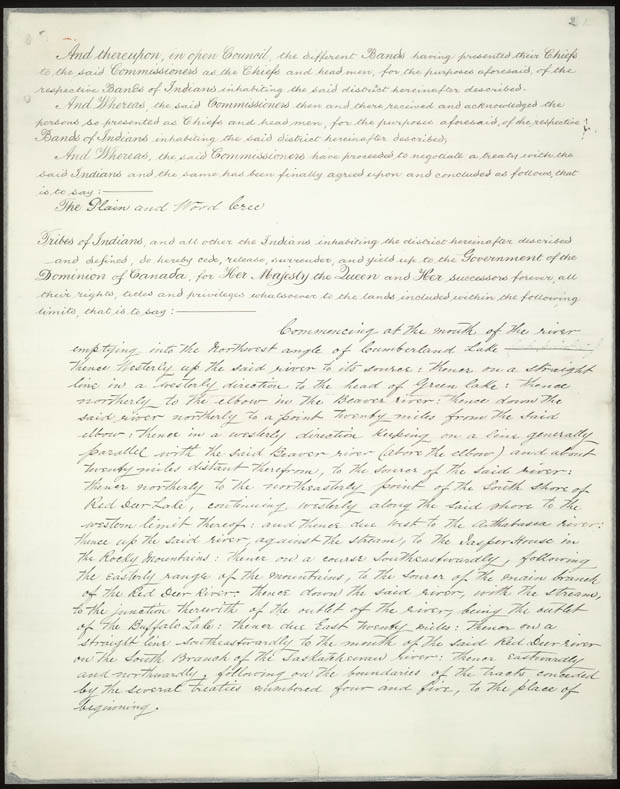 2
And thereupon, in open Council, the different Bands having presented their Chiefs
to the said Commissioners as the Chiefs and head men, for the purposes aforesaid, of the
respective Bands of Indians inhabiting the said district hereinafter described.
And Whereas, the said Commissioners then and there received and acknowledged the
persons so presented as Chiefs and head men, for the purposes aforesaid, of the respective
Bands of Indians inhabiting the said district hereinafter described;
And Whereas, the said Commissioners have proceeded to negotiate a treaty with the
said Indians and the same has been finally agreed upon and concluded as follows, that
is to say:
The Plain and Wood Cree
Tribes of Indians, and all other the Indians inhabiting the district hereinafter described
and defined, do hereby cede, release, surrender, and yield up to the Government of the
Dominion of Canada, for Her Majesty the Queen and Her successors forever, all
their rights, titles and privileges whatsoever to the lands included within the following
limits, that is to say:
Commencing at the mouth of the river
emptying into the Northwest angle of Cumberland Lake
thence Westerly up the said river to its source: thence on a straight
line in a westerly direction to the head of Green Lake: thence
northerly to the elbow in the Beaver river: thence down the
said river northerly to a point twenty miles from the said
elbow: thence in a westerly direction keeping on a line generally
parallel with the said Beaver river (above the elbow) and about
twenty miles distant therefrom, to the source of the said river:
thence northerly to the northeasterly point of the South shore of
Red Deer Lake, continuing westerly along the said shore to the
western limit thereof: and thence due West to the Athabasca river:
thence up the said river, against the stream, to the Jasper House in
the Rocky Mountains: thence on a course Southeastwardly, following
the easterly range of the mountains, to the source of the main branch
of the Red Deer River: thence down the said river, with the stream,
to the junction therewith of the outlet of the river, being the outlet
of the Buffalo Lake: thence due East twenty miles: thence on a
straight line southeastwardly to the mouth of the said Red Deer river
on the South Branch of the Saskatchewan river: thence eastwardly
and northwardly, following on the boundaries of the tracts conceded
by the several treaties numbered four and five, to the place of
beginning.